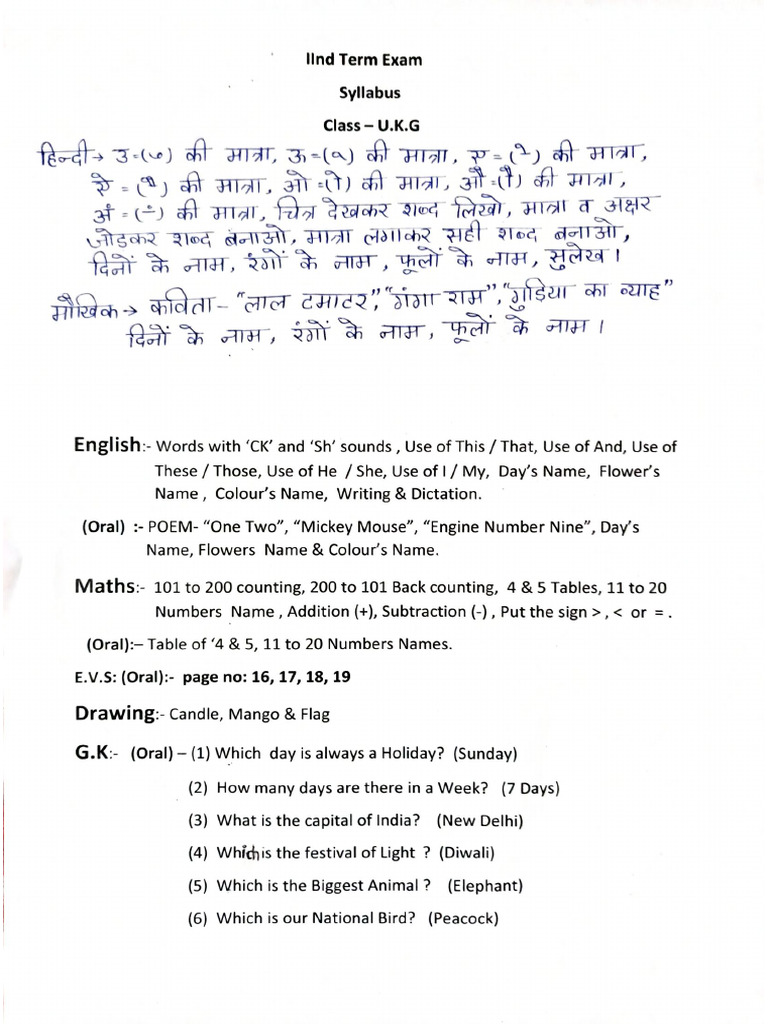 IInd Term Exam
Syllabus
Class – U.K.G
हिन्दी → उ=(ु) की मात्रा, ऊ=(ू) की मात्रा, ए=(े) की मात्रा,
ऐ = (ै) की मात्रा, ओ =(ो) की मात्रा, औ=(ौ) की मात्रा,
अं =(ं) की मात्रा, चित्र देखकर शब्द लिखो, मात्रा व अक्षर
जोडकर शब्द बनाओ, मात्रा लगाकर सही शब्द बनाओ,
दिनों के नाम, रंगों के नाम, फूलों के नाम, सुलेख।
मौखिक → कविता- "लाल टमाटर", "गंगा राम", "गुडिया का ब्याह"
दिनों के नाम, रंगों के नाम, फूलों के नाम।
English:- Words with ‘CK’ and ‘Sh’ sounds , Use of This / That, Use of And, Use of
These / Those, Use of He / She, Use of I / My, Day’s Name, Flower’s
Name , Colour’s Name, Writing & Dictation.
(Oral) :- POEM- “One Two”, “Mickey Mouse”, “Engine Number Nine”, Day’s
Name, Flowers Name & Colour’s Name.
Maths:- 101 to 200 counting, 200 to 101 Back counting, 4 & 5 Tables, 11 to 20
Numbers Name , Addition (+), Subtraction (-) , Put the sign > , < or = .
(Oral):– Table of ‘4 & 5, 11 to 20 Numbers Names.
E.V.S: (Oral):- page no: 16, 17, 18, 19
Drawing:- Candle, Mango & Flag
G.K:- (Oral) – (1) Which day is always a Holiday? (Sunday)
(2) How many days are there in a Week? (7 Days)
(3) What is the capital of India? (New Delhi)
(4) Which is the festival of Light ? (Diwali)
(5) Which is the Biggest Animal ? (Elephant)
(6) Which is our National Bird? (Peacock)